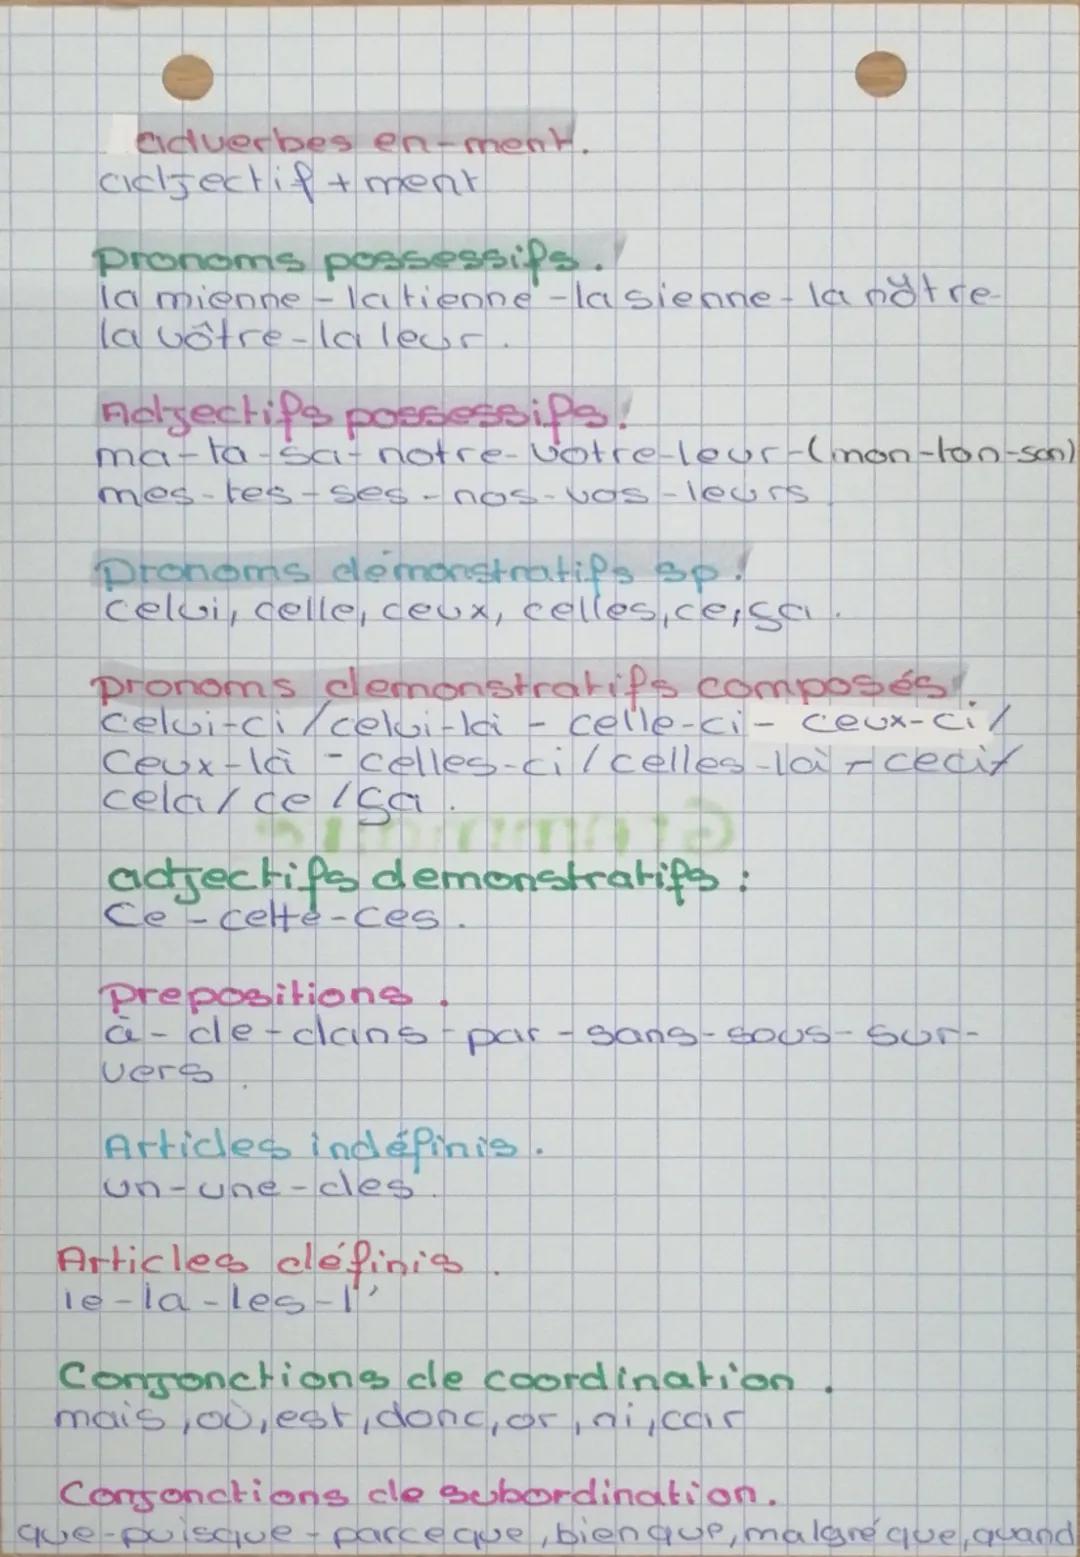 adverbes en-ment.
adjectif + ment
pronoms possessifs.
la mienne - la tienne - la sienne - la nôtre -
la vôtre - la leur.
Adjectifs possessifs.
ma - ta - sa - notre - votre - leur - (mon - ton - son)
mes - tes - ses - nos - vos - leurs
Pronoms démonstratifs sp.
celui, celle, ceux, celles, ce, ça.
pronoms demonstratifs composés.
celui-ci / celui-là - celle-ci - ceux-ci /
ceux-là - celles-ci / celles-là - ceci /
cela / ce / ça.
adjectifs demonstratifs :
Ce - cette - ces.
prepositions.
à - de - dans - par - sans - sous - sur -
vers.
Articles indéfinis.
un - une - des.
Articles définis.
le - la - les - l'
Conjonctions de coordination.
mais, où, est, donc, or, ni, car
Conjonctions de subordination.
que - puisque - parce que, bien que, malgré que, quand